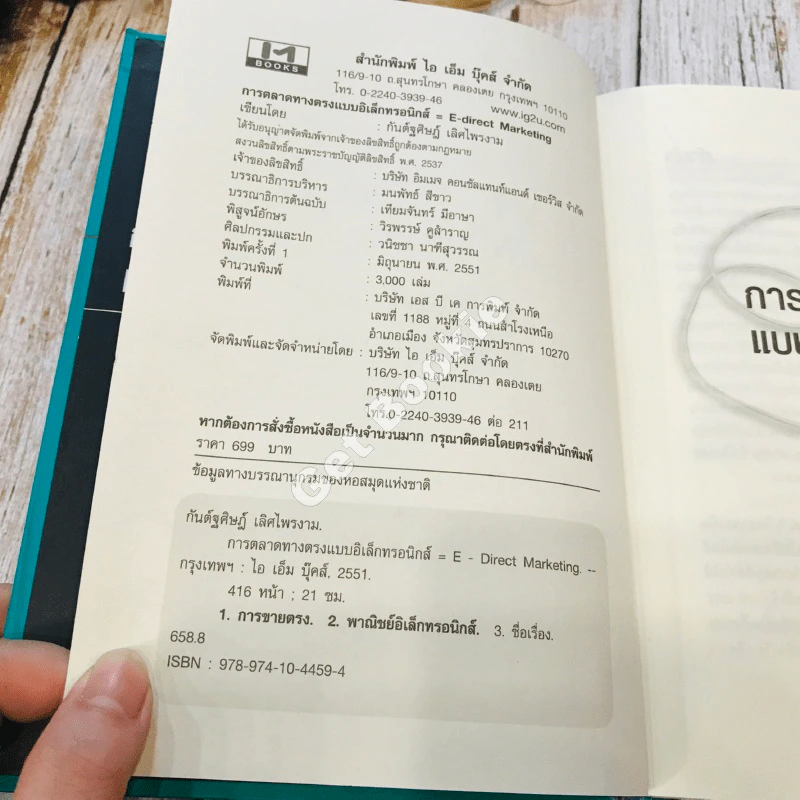 IM
BOOKS
สำนักพิมพ์ ไอ เอ็ม บุ๊คส์ จำกัด
116/9-10 ถ.สุนทรโกษา คลองเตย กรุงเทพฯ 10110
โทร. 0-2240-3939-46 www.ig2u.com
การตลาดทางตรงแบบอิเล็กทรอนิกส์ = E-direct Marketing
เขียนโดย : กันต์ฐศิษฎ์ เลิศไพรงาม
ได้รับอนุญาตจัดพิมพ์จากเจ้าของลิขสิทธิ์ถูกต้องตามกฎหมาย
สงวนลิขสิทธิ์ตามพระราชบัญญัติลิขสิทธิ์ พ.ศ. 2537
เจ้าของลิขสิทธิ์ : บริษัท อิมเมจ คอนซัลแทนท์แอนด์ เซอร์วิส จำกัด
บรรณาธิการบริหาร : มนพัทธ์ สีขาว
บรรณาธิการต้นฉบับ : เทียมจันทร์ มีอาษา
พิสูจน์อักษร : วิรพรรษ์ คูสำราญ
ศิลปกรรมและปก : วนิชชา นาฑีสุวรรณ
พิมพ์ครั้งที่ 1 : มิถุนายน พ.ศ. 2551
จำนวนพิมพ์ : 3,000 เล่ม
พิมพ์ที่ : บริษัท เอส บี เค การพิมพ์ จำกัด
เลขที่ 1188 หมู่ที่ 4 ถนนสำโรงเหนือ
อำเภอเมือง จังหวัดสมุทรปราการ 10270
จัดพิมพ์และจัดจำหน่ายโดย : บริษัท ไอ เอ็ม บุ๊คส์ จำกัด
116/9-10 ถ.สุนทรโกษา คลองเตย
กรุงเทพฯ 10110
โทร.0-2240-3939-46 ต่อ 211
หากต้องการสั่งซื้อหนังสือเป็นจำนวนมาก กรุณาติดต่อโดยตรงที่สำนักพิมพ์
ราคา 699 บาท
ข้อมูลทางบรรณานุกรมของหอสมุดแห่งชาติ
กันต์ฐศิษฎ์ เลิศไพรงาม.
การตลาดทางตรงแบบอิเล็กทรอนิกส์ = E - Direct Marketing. --
กรุงเทพฯ : ไอ เอ็ม บุ๊คส์, 2551.
416 หน้า ; 21 ซม.
1. การขายตรง. 2. พาณิชย์อิเล็กทรอนิกส์. 3. ชื่อเรื่อง.
658.8
ISBN : 978-974-10-4459-4
Get Bookie
การ
แบบ